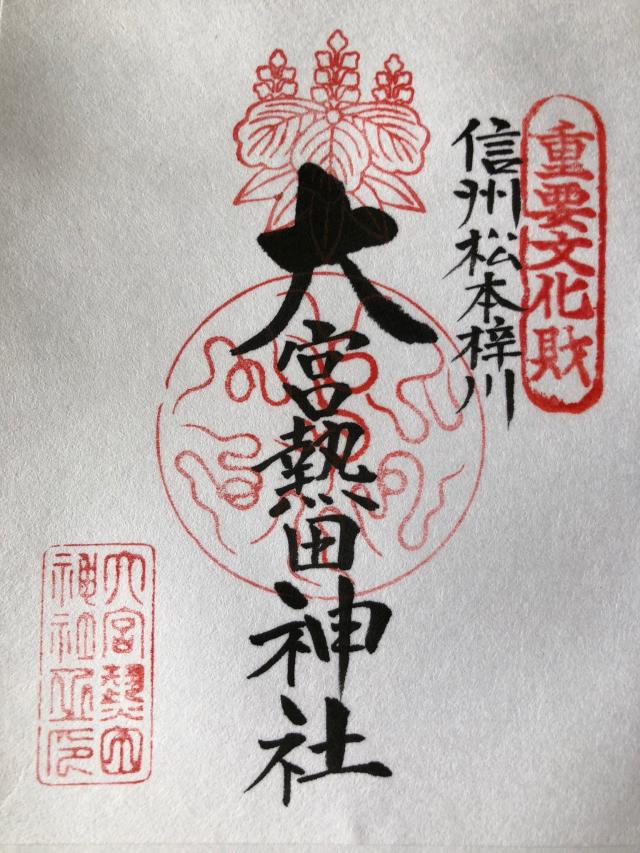 重要文化財
信州松本梓川
大宮熱田神社
大宮熱田
神社之印